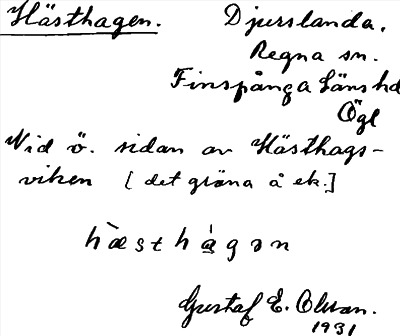 Hästhagen. Djurslanda.
Regna sn.
Finspånga Läns hd
Ögl
Vid ö. sidan av Hästhags-
viken [det gräna å ek.]
hæ̀sthágən
Gustaf E. Olsson.
1931